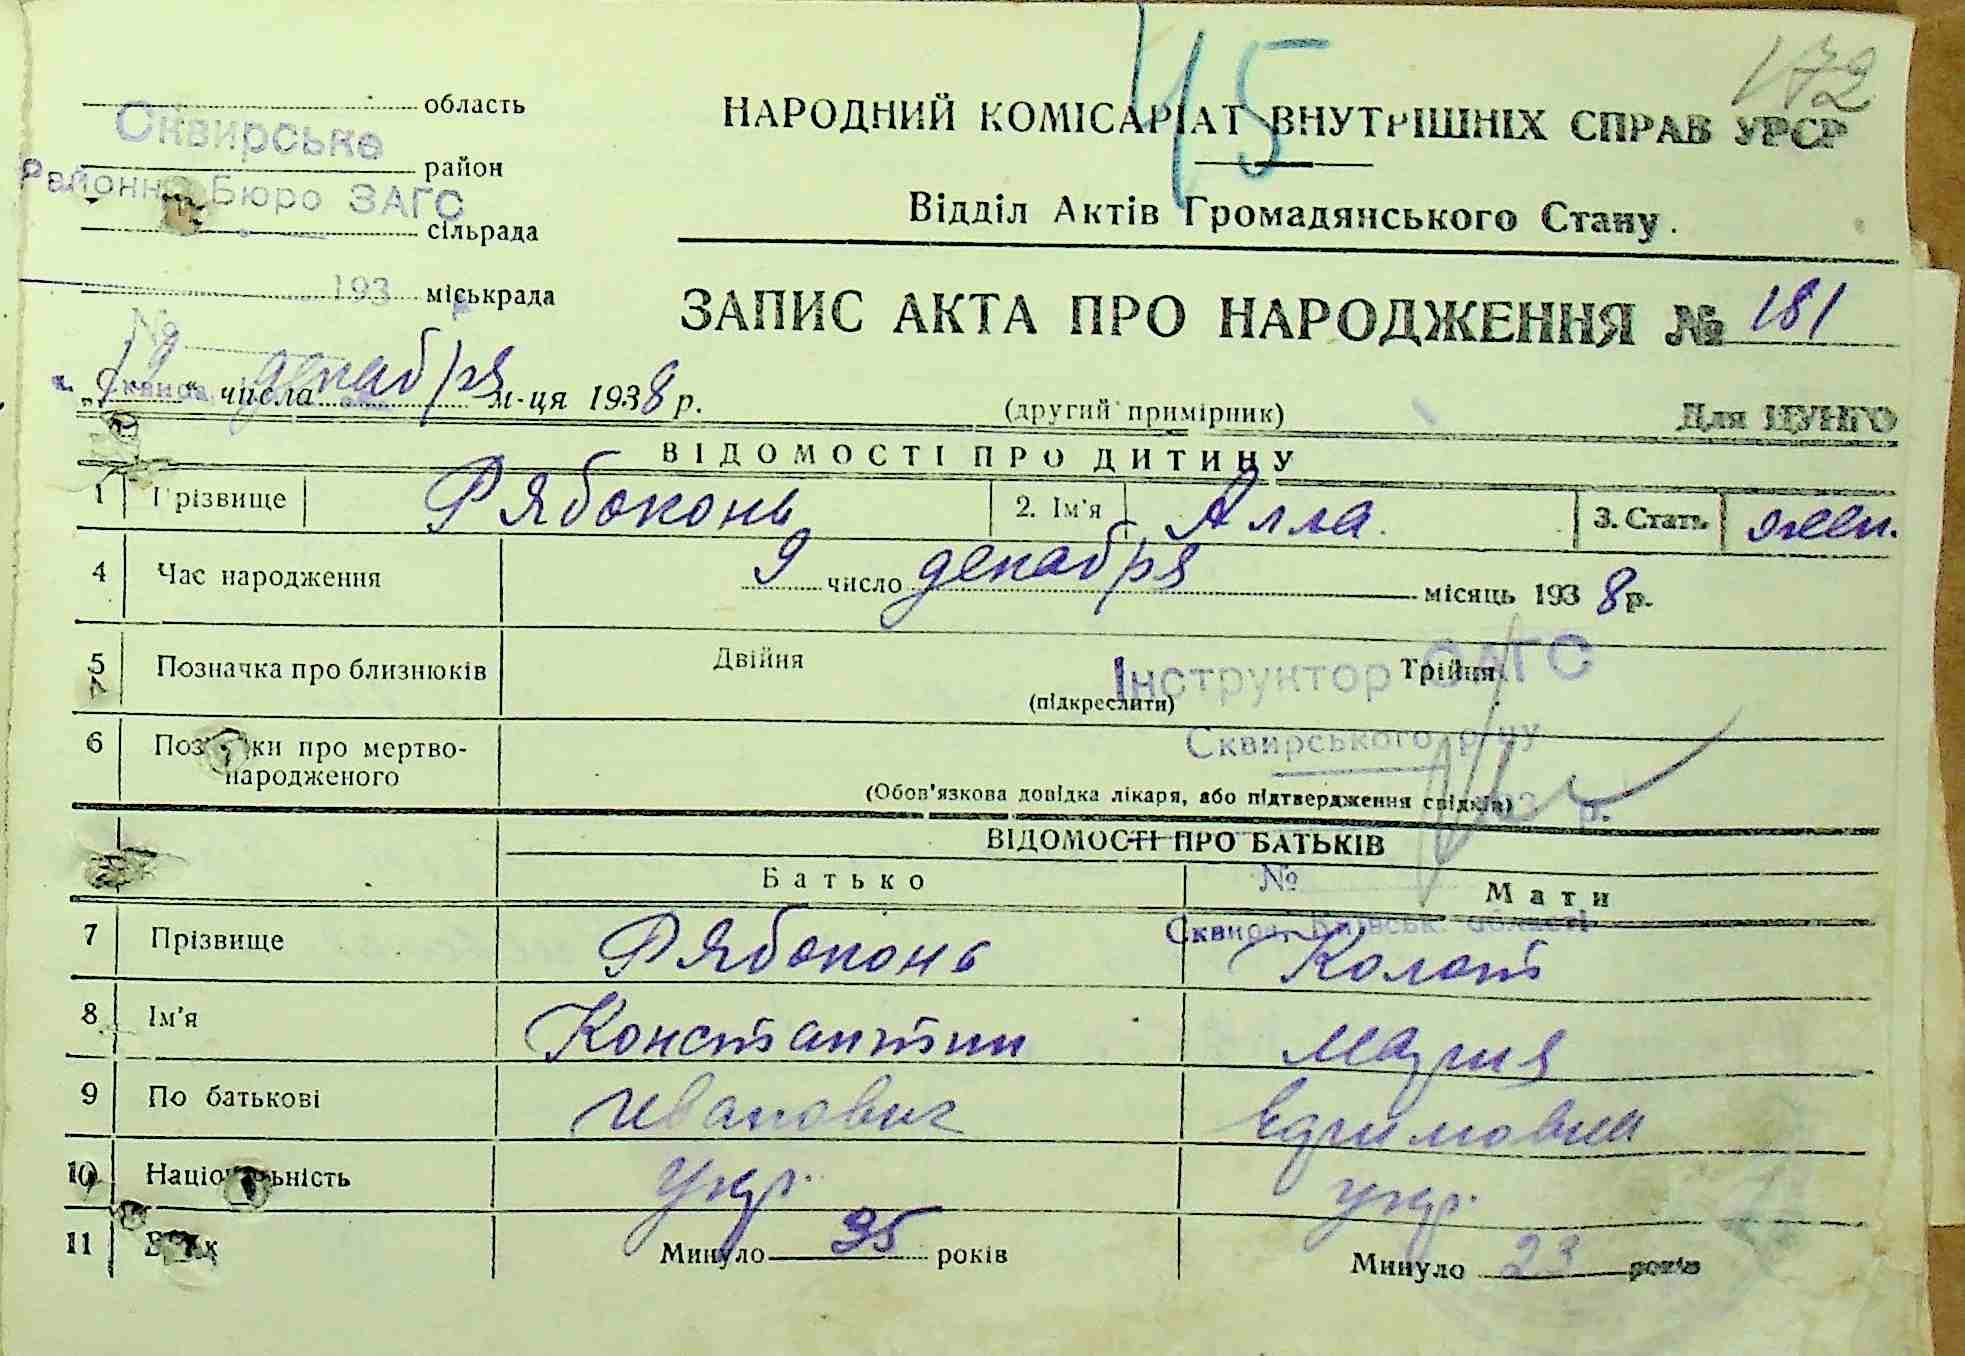 45
172
область
Сквирське
район
Районне Бюро ЗАГС
сільрада
193 міськрада
№
НАРОДНИЙ КОМІСАРІАТ ВНУТРІШНІХ СПРАВ УРСР
Відділ Актів Громадянського Стану.
ЗАПИС АКТА ПРО НАРОДЖЕННЯ № 181
числа декабря м-ця 1938 р.
(другий примірник)
Для ЦУНГО
ВІДОМОСТІ ПРО ДИТИНУ
1 Прізвище Рябоконь 2. Ім'я Алла. 3. Стать жен.
4 Час народження 9 число декабря місяць 1938 р.
5 Позначка про близнюків Двійня Трійня
(підкреслити)
Інструктор ЗАГС
6 Позначки про мертво-
народженого
Сквирського
(Обов'язкова довідка лікаря, або підтвердження свідків)
193 р.
ВІДОМОСТІ ПРО БАТЬКІВ
Батько Мати
№
Сквира, Київськ. області
7 Прізвище Рябоконь Колот
8 Ім'я Константин Мария
9 По батькові Иванович
10 Національність укр. укр.
11 Вік Минуло 35 років Минуло 23 років